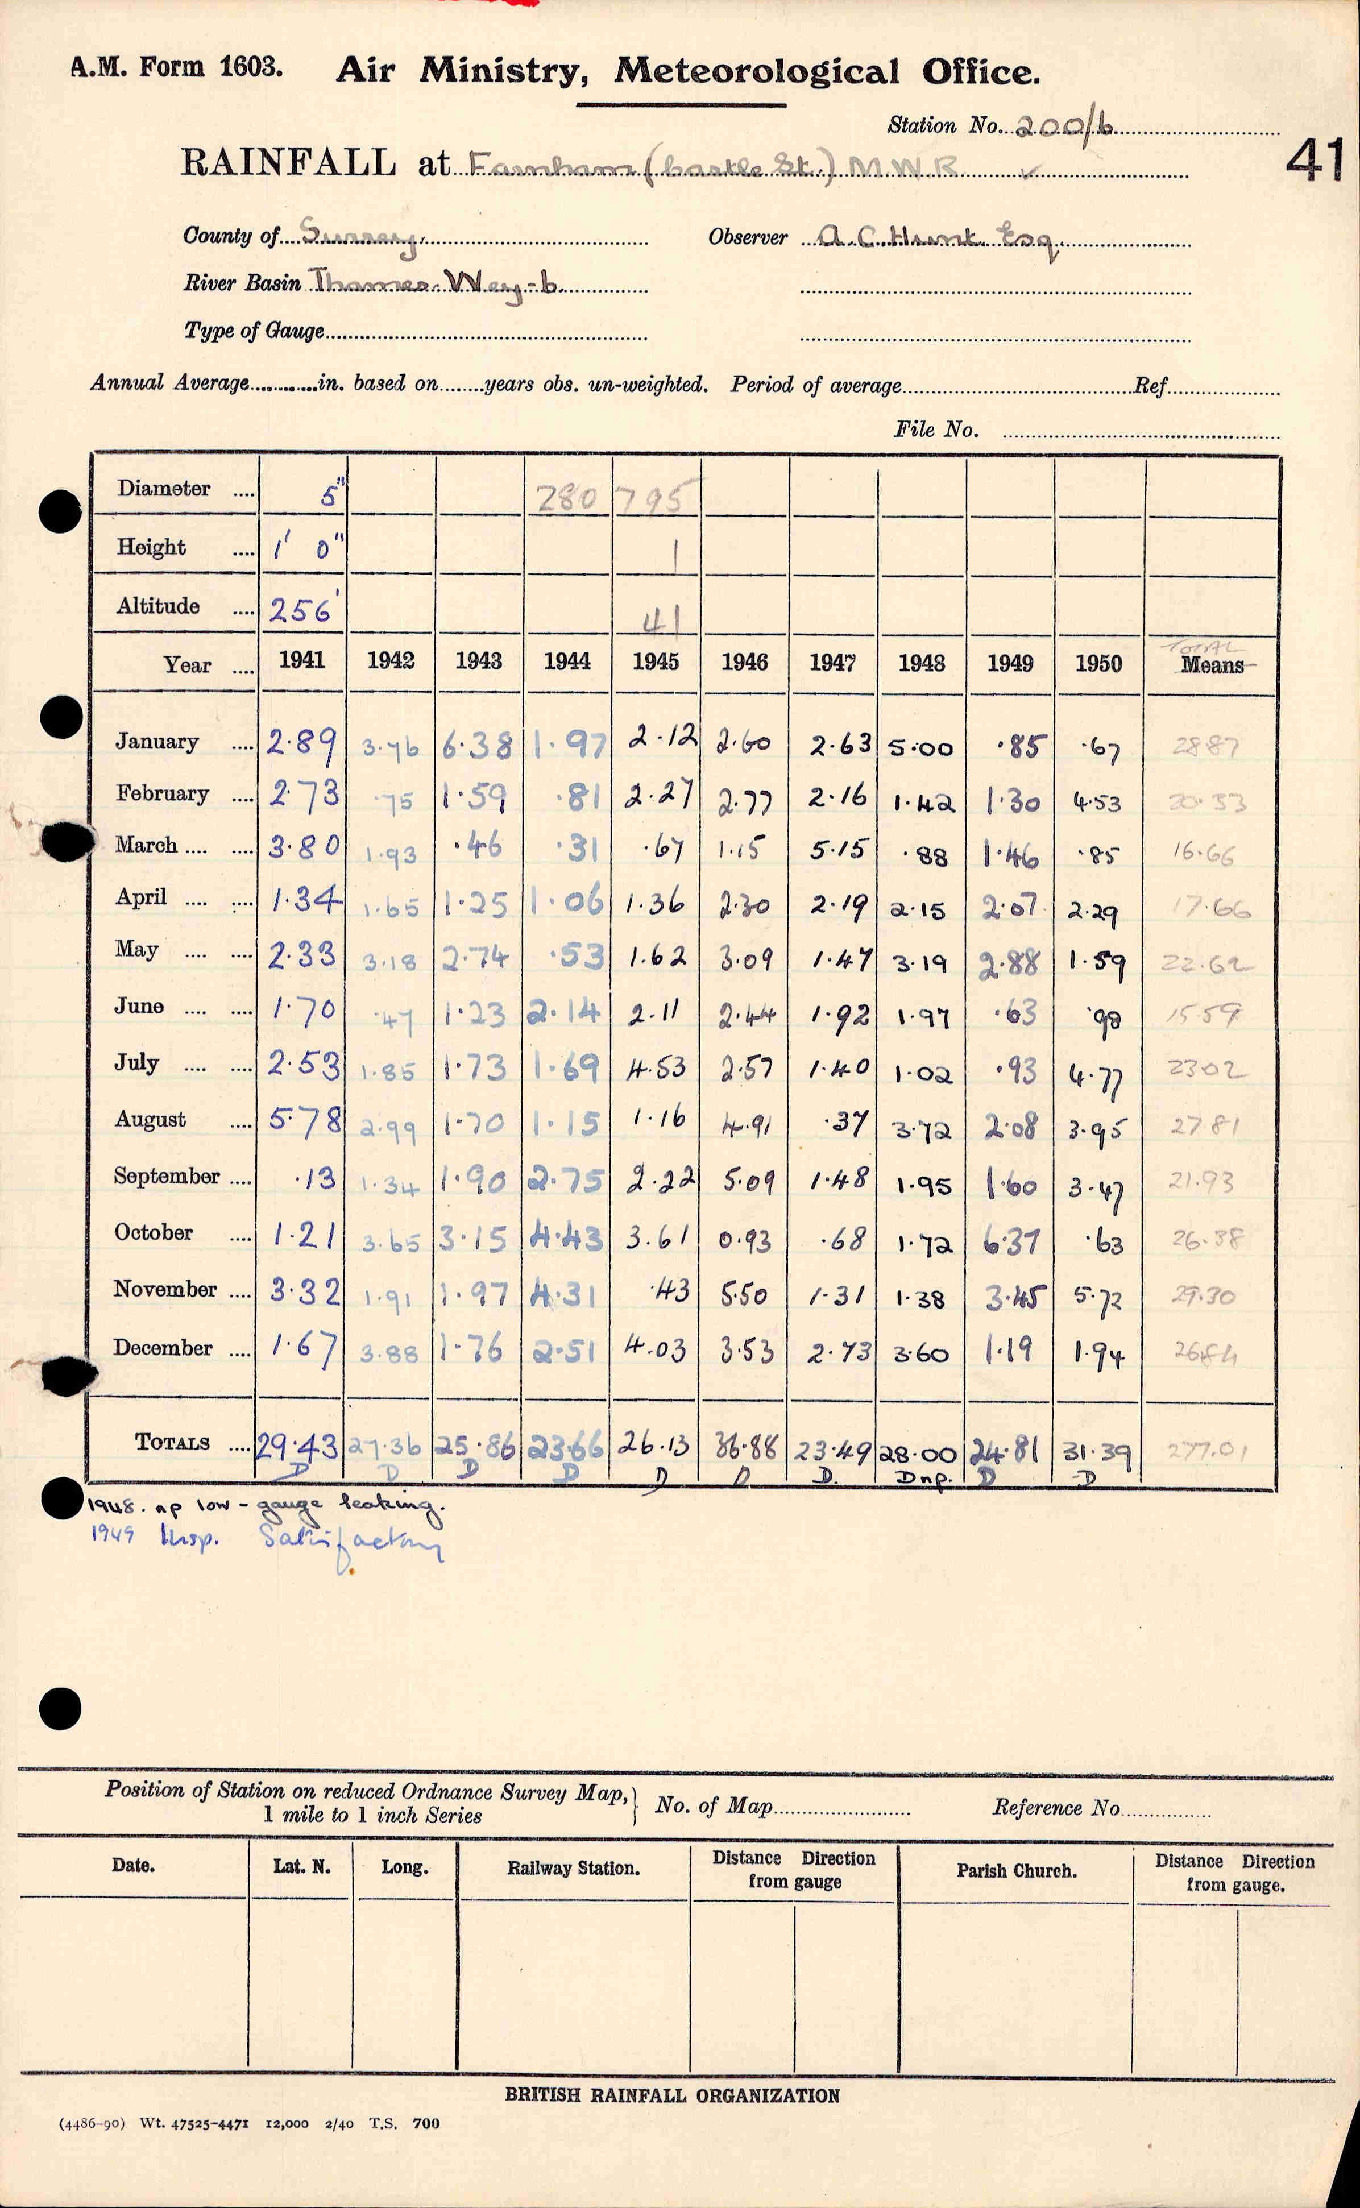 A.M. Form 1603. Air Ministry, Meteorological Office.
Station No. 200/6
41
RAINFALL at Farnham (Castle St.) M.W.R. ✓
County of Surrey. Observer A. C. Hunt. Esq.
River Basin Thames. Wey-b
Type of Gauge
Annual Average in. based on years obs. un-weighted. Period of average Ref.
File No.
Diameter .... 5" 280 795
Height .... 1' 0" 1
Altitude .... 256' 41
TOTAL
Year .... 1941 1942 1943 1944 1945 1946 1947 1948 1949 1950 Means
January .... 2.89 3.76 6.38 1.97 2.12 2.60 2.63 5.00 .85 .67 28.87
February .... 2.73 .75 1.59 .81 2.27 2.77 2.16 1.42 1.30 4.53 20.33
March .... .... 3.80 1.93 .46 .31 .67 1.15 5.15 .88 1.46 .85 16.66
April .... .... 1.34 1.65 1.25 1.06 1.36 2.30 2.19 2.15 2.07 2.29 17.66
May .... .... 2.33 3.18 2.74 .53 1.62 3.09 1.47 3.19 2.88 1.59 22.62
June .... .... 1.70 .47 1.23 2.14 2.11 2.44 1.92 1.97 .63 .98 15.59
July .... .... 2.53 1.85 1.73 1.69 4.53 2.57 1.40 1.02 .93 4.77 23.02
August .... 5.78 2.99 1.70 1.15 1.16 4.91 .37 3.72 2.08 3.95 27.81
September .... .13 1.34 1.90 2.75 2.22 5.09 1.48 1.95 1.60 3.47 21.93
October .... 1.21 3.65 3.15 4.43 3.61 0.93 .68 1.72 6.37 .63 26.38
November .... 3.32 1.91 1.97 4.31 .43 5.50 1.31 1.38 3.45 5.72 29.30
December .... 1.67 3.88 1.76 2.51 4.03 3.53 2.73 3.60 1.19 1.94 26.84
TOTALS .... 29.43 27.36 25.86 23.66 26.13 36.88 23.49 28.00 24.81 31.39 277.01
D D D D D D D. D n.p. D D
1948. np low - gauge leaking.
1949 Insp. Satisfactory
Position of Station on reduced Ordnance Survey Map, } No. of Map Reference No.
1 mile to 1 inch Series
Date. Lat. N. Long. Railway Station. Distance Direction from gauge Parish Church. Distance Direction from gauge.
BRITISH RAINFALL ORGANIZATION
(4486-90) Wt. 47525-4471 12,000 2/40 T.S. 700